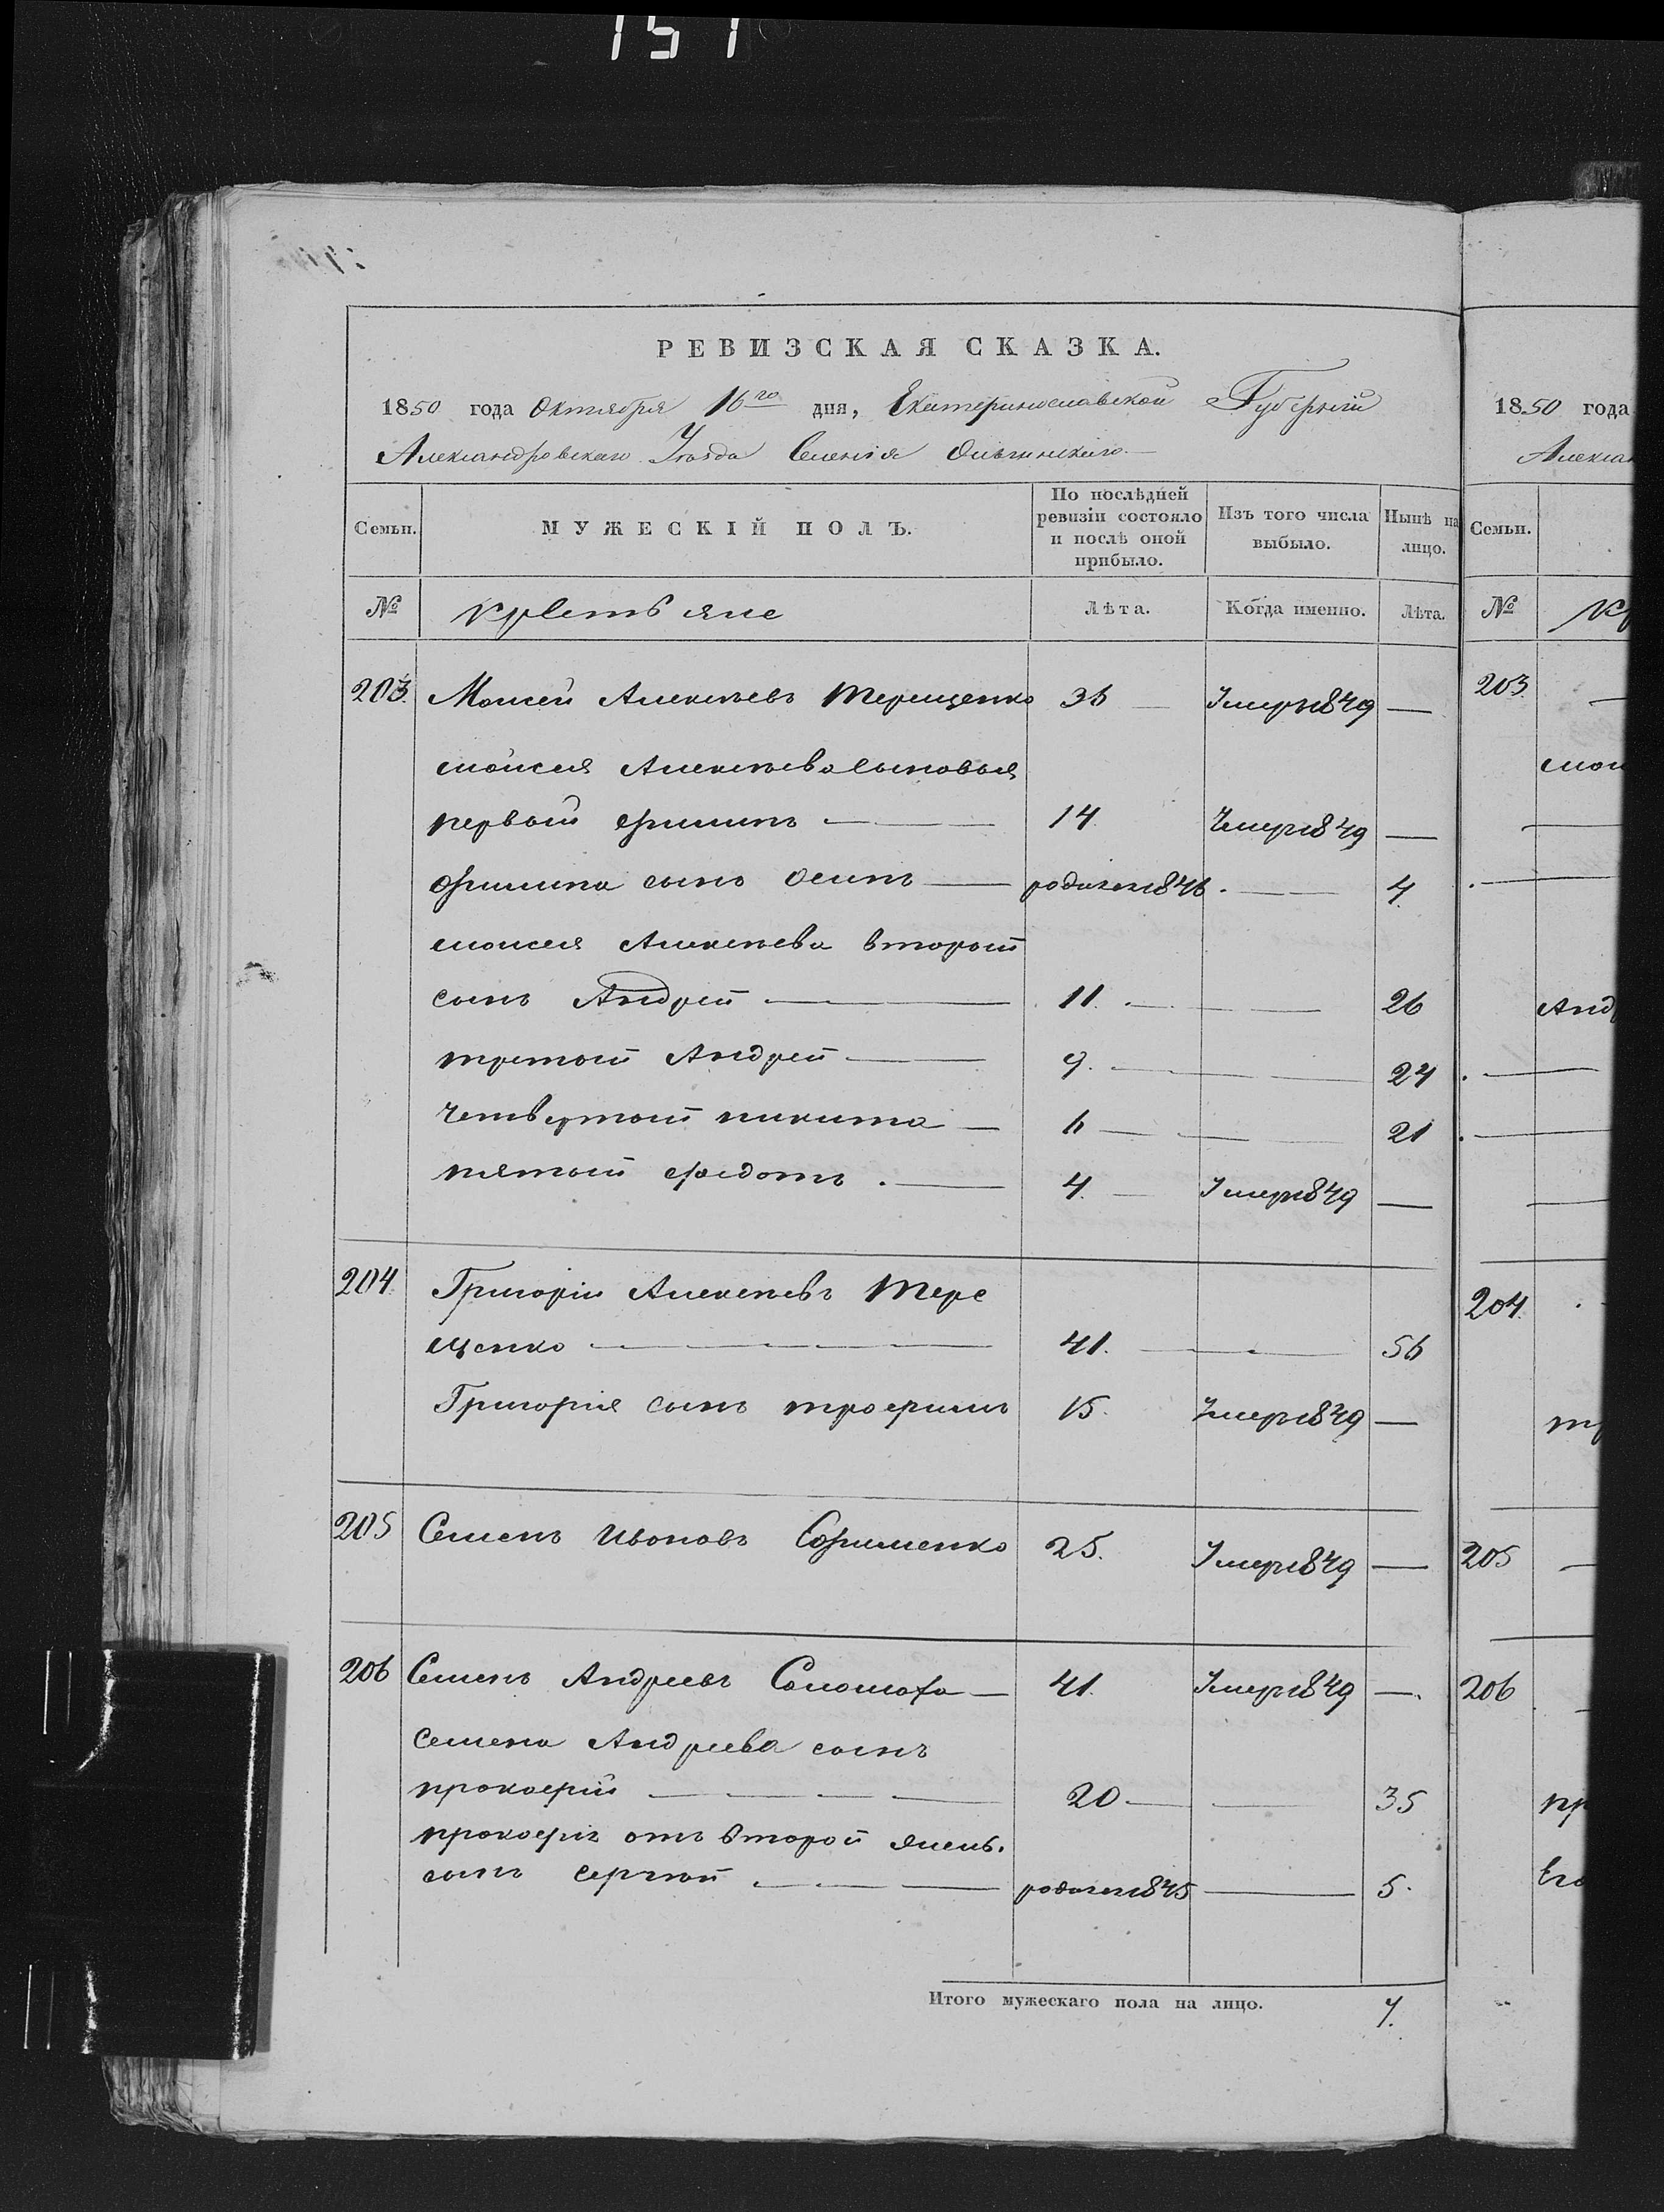 151
РЕВИЗСКАЯ СКАЗКА.
1850 года Октября 16го дня, Екатеринославской Губерніи
Александровскаго Уѣзда Селенія Ольгинскаго
Семьи. МУЖЕСКІЙ ПОЛЪ. По послѣдней ревизіи состояло и послѣ оной прибыло. Изъ того числа выбыло. Нынѣ на лицо.
№ крестьяне Лѣта. Когда именно. Лѣта.
203 Моисей Алексѣевъ Терещенко 36 Умеръ 1849 —
моисея Алексѣева сыновья
первый филипъ — 14 Умеръ 1849 —
филипа сынъ осипъ — родился 1846 — 4
моисея Алексѣева второй
сынъ Андрей — 11 — 26
третій Андрей — 9 — 24
четвертой никита — 6 — 21
пятый федотъ — 4 Умеръ 1849 —
204 Григорій Алексѣевъ Тере
щенко — 41 — 56
Григорія сынъ трофимъ 15 Умеръ 1849 —
205 Семенъ Ивановъ Ефименко 25 Умеръ 1849 —
206 Семенъ Андреевъ Саломаха — 41 Умеръ 1849 —
семена Андреева сынъ
прокофій — 20 — 35
прокофія отъ второй жены
сынъ сергѣй — родился 1845 — 5
Итого мужескаго пола на лицо. 7.
1850 года
Алексан
Семьи.
№ Кр
203
мои
Анд
204
тр
205
206
пр
Его